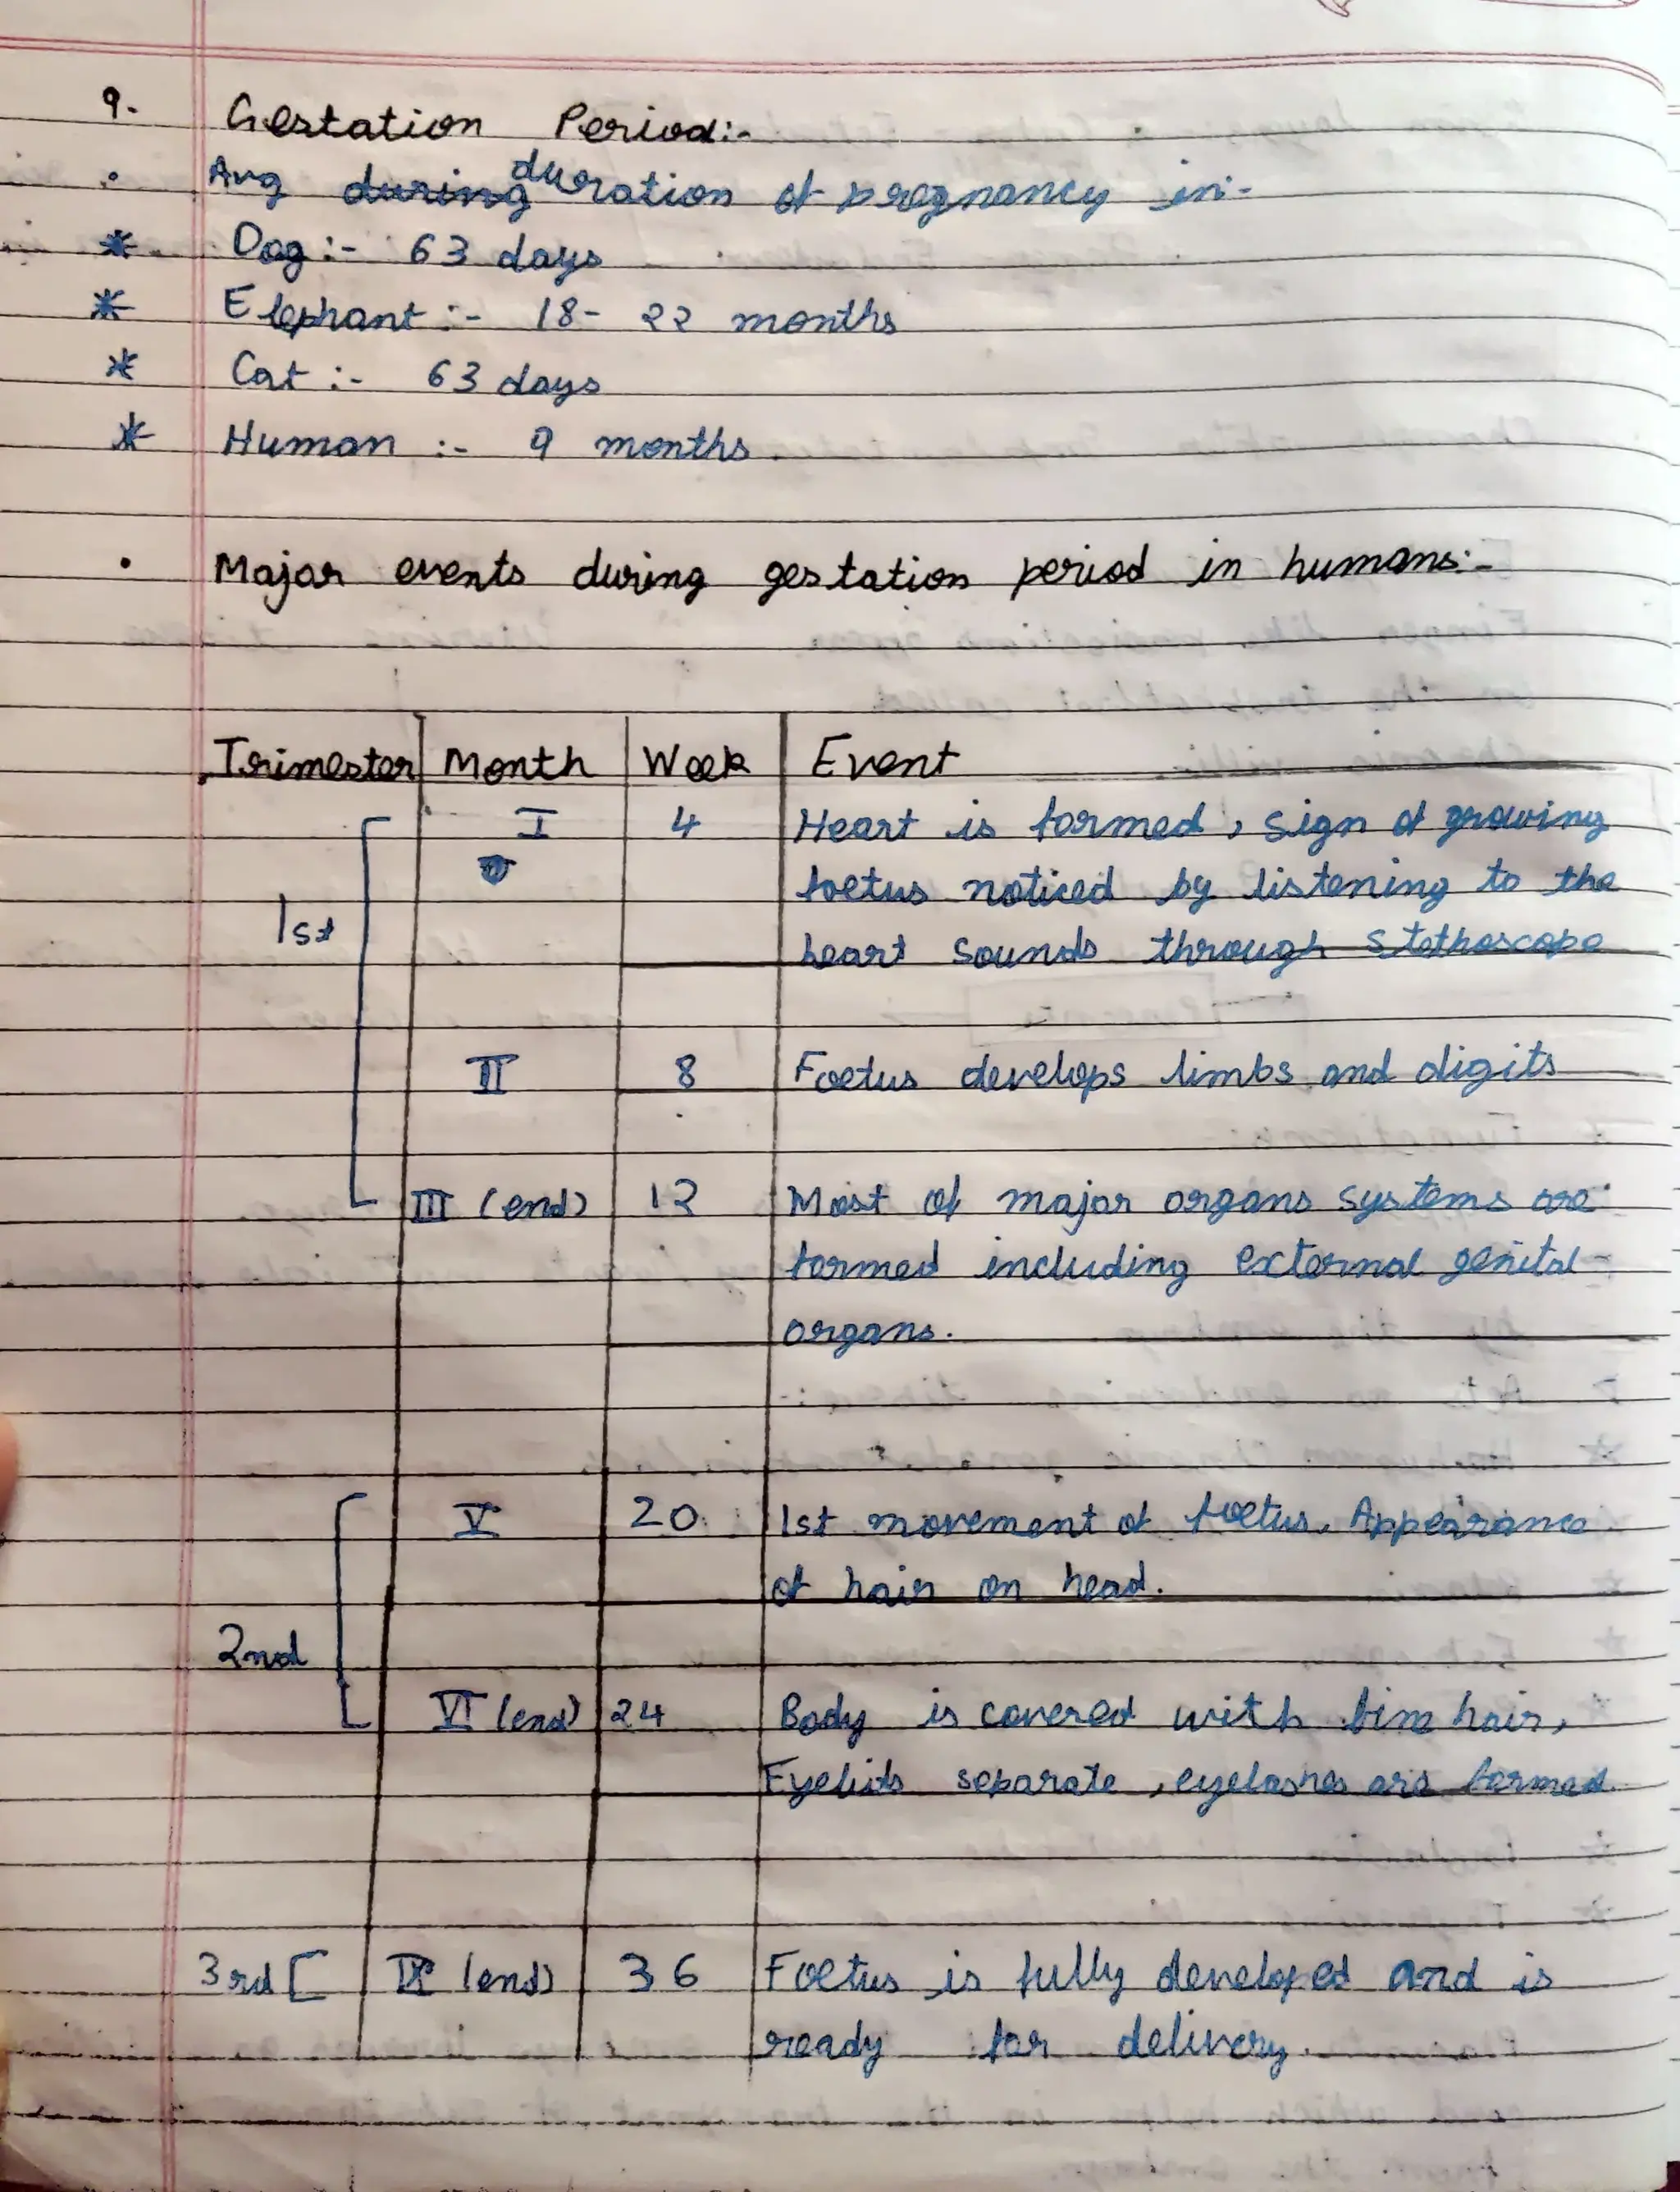 9. Gestation Period:-
• Avg during duration of pregnancy in:-
* Dog :- 63 days
* Elephant :- 18- 22 months
* Cat :- 63 days
* Human :- 9 months
• Major events during gestation period in humans:-
Trimester Month Week Event
I 4 Heart is formed, sign of growing
foetus noticed by listening to the
1st heart sounds through stethoscope
II 8 Foetus develops limbs and digits
III (end) 12 Most of major organs systems are
formed including external genital
organs.
V 20 1st movement of foetus. Appearance
of hair on head.
2nd
VI (end) 24 Body is covered with fine hair,
Eyelids separate, eyelashes are formed
3rd IX (end) 36 Foetus is fully developed and is
ready for delivery.